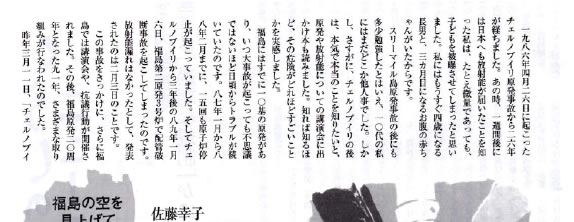 一九八六年四月二六日に起った
チェルノブイリ原発事故から二六年
が経ちました。あの時、一週間後に
は日本へも放射能が届いたことを知
った私は、たとえ微量であっても、
子どもを被曝させてしまったと思い
ました。私にはもうすぐ四歳になる
長男と、三カ月目になるお腹の赤ち
ゃんがいたからです。
スリーマイル島原発事故の後にも
多少勉強したとはいえ、一〇代の私
にはまだどこか他人事でした。しか
し、さすがに、チェルノブイリの後
は、本気で本当のことを知りたいと、
原発や放射能についての講演会に出
かけ本も読みました。知れば知るほ
ど、その危険がどれほどすごいこと
かを実感しました。
福島にはすでに一〇基の原発があ
り、いつ大事故が起こっても不思議
ではないほど日頃からトラブルが続
いていたのです。八七年一月から八
八年二月までに、一五回も原子炉停
止が起こっていました。そしてチェ
ルノブイリから三年後の八九年一月
六日、福島第二原発3号炉で配管破
断事故を起こしてしまったのです。
放射能漏れはなかったとして、発表
されたのは二月三日のことです。
この事故をきっかけに、さらに福
島では講演会や、抗議行動が開催さ
れました。その後、福島原発二〇周
年となった九一年、さまざまな取り
組みが行なわれたのでした。
昨年三月一一日、「チェルノブイ
福島の空を
見上げて
佐藤幸子